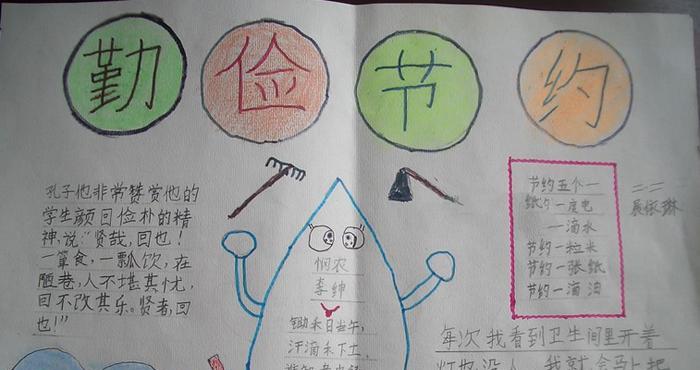 勤俭节约
孔子他非常赞赏他的
学生颜回俭朴的精
神,说:“贤哉,回也!
一箪食,一瓢饮,在
陋巷,人不堪其忧,
回不改其乐。贤者,回
也!”
悯农
李绅
锄禾日当午,
汗滴禾下土,
节约五个一
节约一度电
一滴水
节约一粒米
节约一张纸
节约一滴油
二·二
每次我看到卫生间里开着
灯却没人,我就会马上把